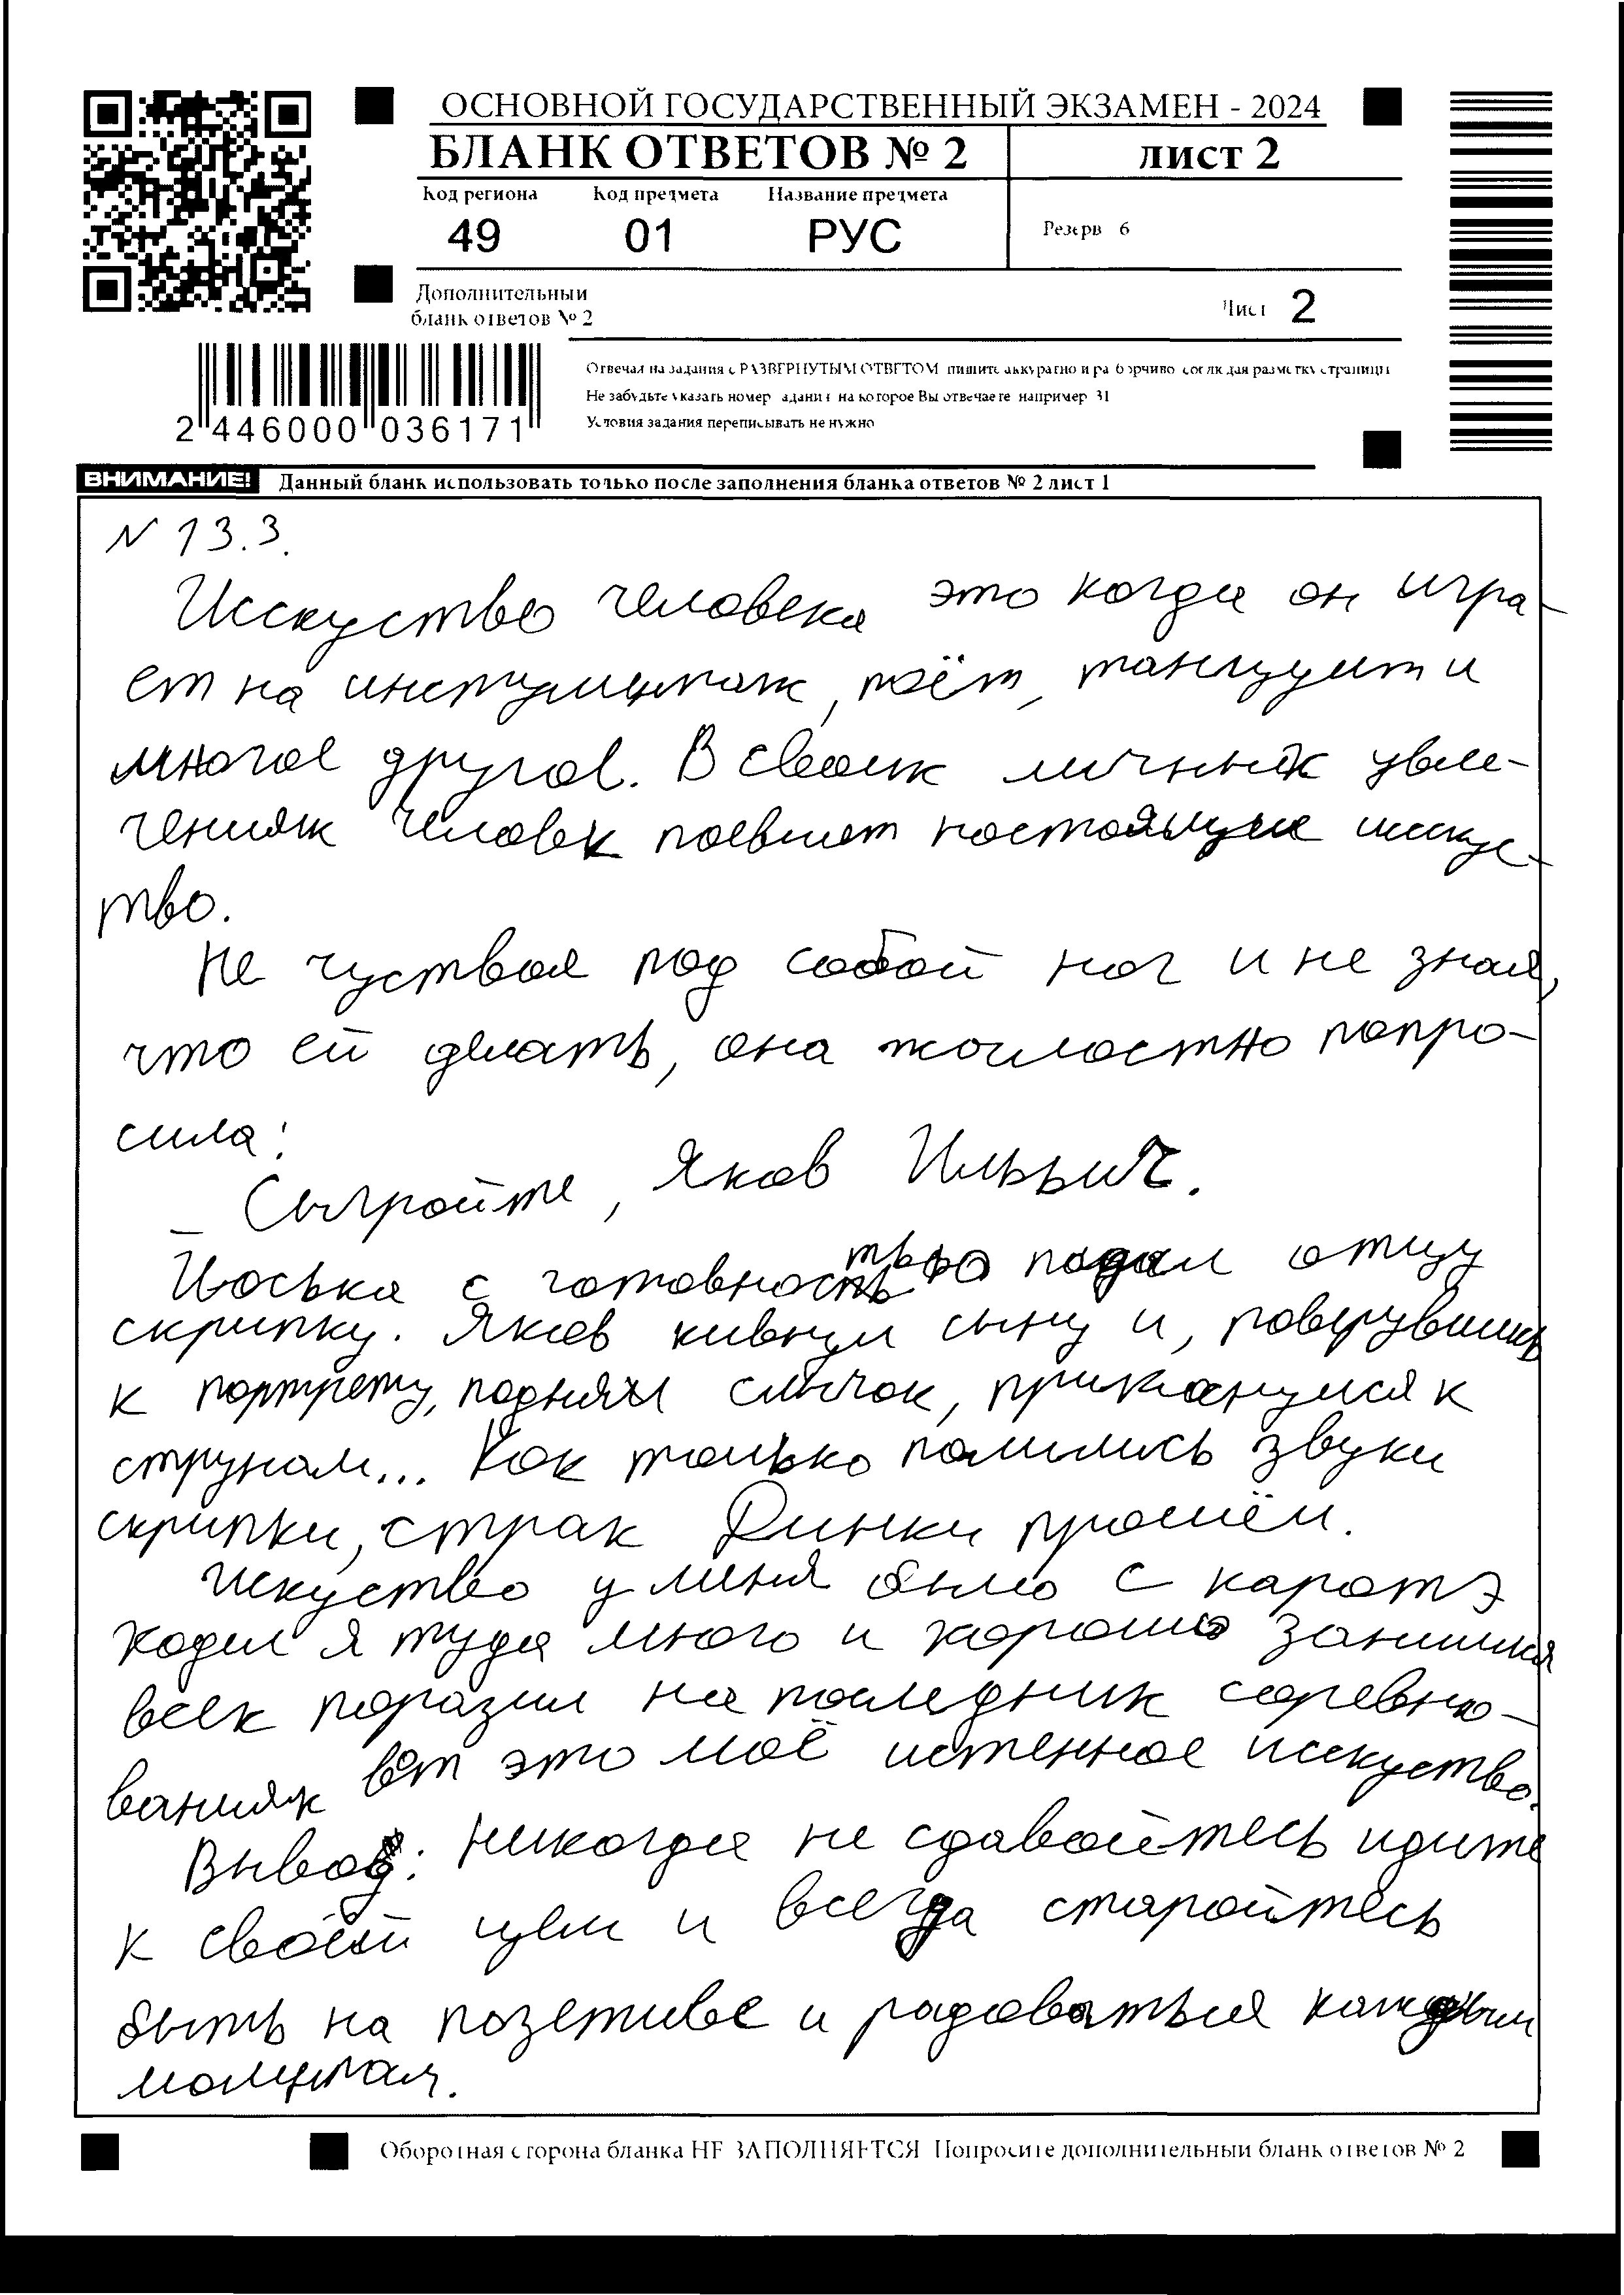 ОСНОВНОЙ ГОСУДАРСТВЕННЫЙ ЭКЗАМЕН - 2024
БЛАНК ОТВЕТОВ № 2 лист 2
Код региона Код предмета Название предмета
49 01 РУС
Резерв 6
Дополнительный
бланк ответов № 2
Лист 2
Отвечая на задания с РАЗВЕРНУТЫМ ОТВЕТОМ пишите аккуратно и разборчиво соблюдая разметку страницы
Не забудьте указать номер задания на которое Вы отвечаете например 31
Условия задания переписывать не нужно
2 446000 036171
ВНИМАНИЕ! Данный бланк использовать только после заполнения бланка ответов № 2 лист 1
N 13.3.
Исскуство человека это когда он игра-
ет на инструментах, поёт, танцует и
многое другое. В своих личных увле-
чениях человек поевляет ностоящее искус-
тво.
Не чуствая под собой ног и не зная,
что ей делать, она жолостно попро-
сила:
– Сыграйте, Яков Ильич.
Йоська с готовностью подал отцу
скрипку. Яков кивнул сыну и, повернувшись
к портрету, поднял смычок, прикоснулся к
струнам... Как только полились звуки
скрипки, страх Динки прошёл.
Искуство у меня было с каратэ
ходил я туда много и хорошо занимался
всех поразил на последних соревно-
ваниях вот это моё истенное искуство.
Вывод: Никогда не сдавайтесь идите
к своей цели и всегда старайтесь
быть на позетиве и радоваться каждым
моментам.
Оборотная сторона бланка НЕ ЗАПОЛНЯЕТСЯ Попросите дополнительный бланк ответов № 2